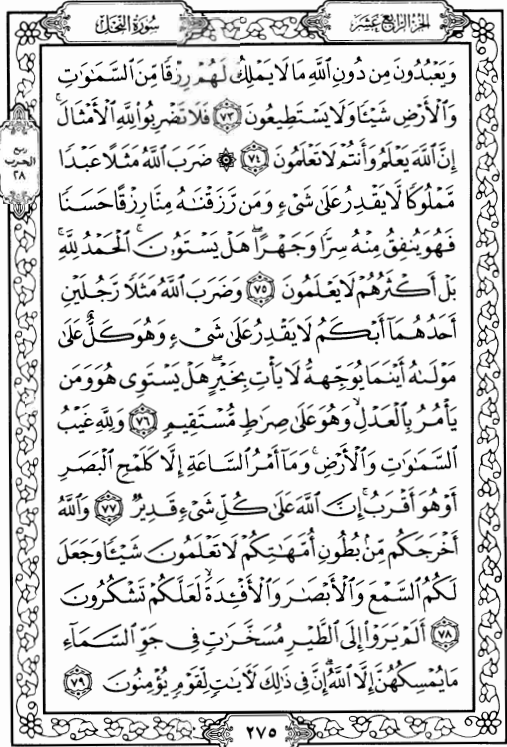 الجزء الرابع عشر
سورة النحل
وَيَعْبُدُونَ مِن دُونِ اللَّهِ مَا لَا يَمْلِكُ لَهُمْ رِزْقًا مِّنَ السَّمَٰوَٰتِ
وَالْأَرْضِ شَيْئًا وَلَا يَسْتَطِيعُونَ ٧٣ فَلَا تَضْرِبُوا لِلَّهِ الْأَمْثَالَ ۚ
إِنَّ اللَّهَ يَعْلَمُ وَأَنتُمْ لَا تَعْلَمُونَ ٧٤ ۞ ضَرَبَ اللَّهُ مَثَلًا عَبْدًا
مَّمْلُوكًا لَّا يَقْدِرُ عَلَىٰ شَىْءٍ وَمَن رَّزَقْنَٰهُ مِنَّا رِزْقًا حَسَنًا
فَهُوَ يُنفِقُ مِنْهُ سِرًّا وَجَهْرًا ۖ هَلْ يَسْتَوُۥنَ ۚ الْحَمْدُ لِلَّهِ ۚ
بَلْ أَكْثَرُهُمْ لَا يَعْلَمُونَ ٧٥ وَضَرَبَ اللَّهُ مَثَلًا رَّجُلَيْنِ
أَحَدُهُمَآ أَبْكَمُ لَا يَقْدِرُ عَلَىٰ شَىْءٍ وَهُوَ كَلٌّ عَلَىٰ
مَوْلَىٰهُ أَيْنَمَا يُوَجِّههُّ لَا يَأْتِ بِخَيْرٍ ۖ هَلْ يَسْتَوِى هُوَ وَمَن
يَأْمُرُ بِالْعَدْلِ ۙ وَهُوَ عَلَىٰ صِرَٰطٍ مُّسْتَقِيمٍ ٧٦ وَلِلَّهِ غَيْبُ
السَّمَٰوَٰتِ وَالْأَرْضِ ۚ وَمَآ أَمْرُ السَّاعَةِ إِلَّا كَلَمْحِ الْبَصَرِ
أَوْ هُوَ أَقْرَبُ ۚ إِنَّ اللَّهَ عَلَىٰ كُلِّ شَىْءٍ قَدِيرٌ ٧٧ وَاللَّهُ
أَخْرَجَكُم مِّنۢ بُطُونِ أُمَّهَٰتِكُمْ لَا تَعْلَمُونَ شَيْئًا وَجَعَلَ
لَكُمُ السَّمْعَ وَالْأَبْصَٰرَ وَالْأَفْـِٔدَةَ ۙ لَعَلَّكُمْ تَشْكُرُونَ
٧٨ أَلَمْ يَرَوْا إِلَى الطَّيْرِ مُسَخَّرَٰتٍ فِى جَوِّ السَّمَآءِ
مَا يُمْسِكُهُنَّ إِلَّا اللَّهُ ۗ إِنَّ فِى ذَٰلِكَ لَءَايَٰتٍ لِّقَوْمٍ يُؤْمِنُونَ ٧٩
ربع
الحزب
٢٨
٢٧٥